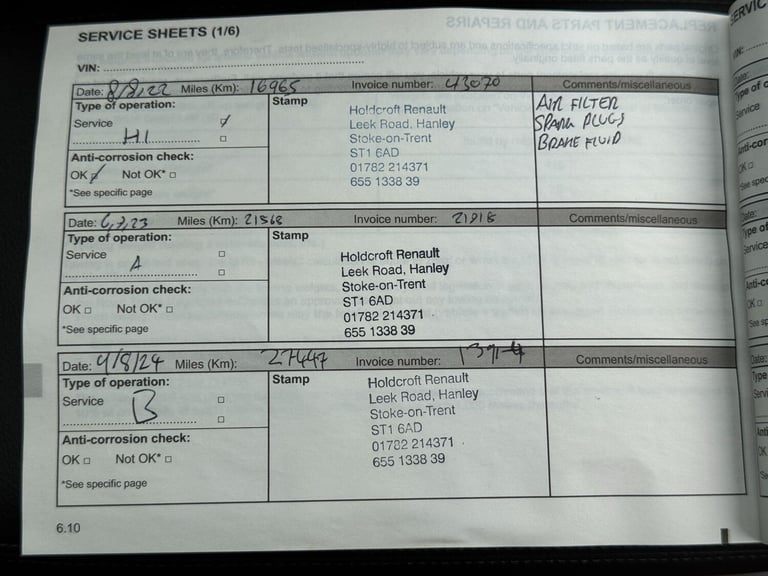 SERVICE SHEETS (1/6)
VIN:
Date: 8/8/22 Miles (Km): 16965 Invoice number: 43070 Comments/miscellaneous
Type of operation:
Service
H1
Anti-corrosion check:
OK Not OK*
*See specific page
Stamp
Holdcroft Renault
Leek Road, Hanley
Stoke-on-Trent
ST1 6AD
01782 214371
655 1338 39
AIR FILTER
SPARK PLUGS
BRAKE FLUID
Date: 6,7,23 Miles (Km): 21568 Invoice number: Comments/miscellaneous
Type of operation:
Service
A
Anti-corrosion check:
OK Not OK*
*See specific page
Stamp
Holdcroft Renault
Leek Road, Hanley
Stoke-on-Trent
ST1 6AD
01782 214371
655 1338 39
Date: 9/8/24 Miles (Km): 27447 Invoice number: Comments/miscellaneous
Type of operation:
Service
B
Anti-corrosion check:
OK Not OK*
*See specific page
Stamp
Holdcroft Renault
Leek Road, Hanley
Stoke-on-Trent
ST1 6AD
01782 214371
655 1338 39
6.10